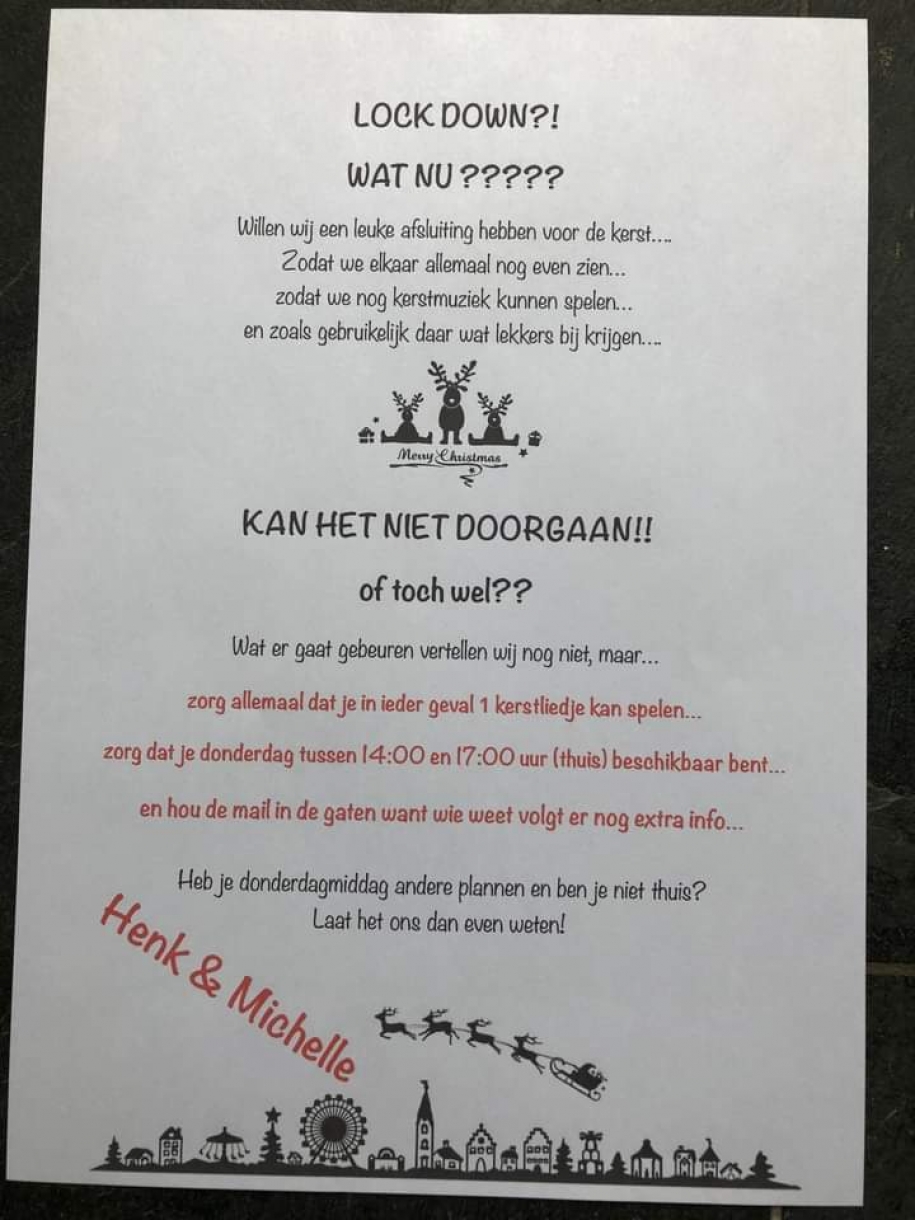 LOCK DOWN?!
WAT NU ?????
Willen wij een leuke afsluiting hebben voor de kerst....
Zodat we elkaar allemaal nog even zien...
zodat we nog kerstmuziek kunnen spelen...
en zoals gebruikelijk daar wat lekkers bij krijgen....
Merry Christmas
KAN HET NIET DOORGAAN!!
of toch wel??
Wat er gaat gebeuren vertellen wij nog niet, maar...
zorg allemaal dat je in ieder geval 1 kerstliedje kan spelen...
zorg dat je donderdag tussen 14:00 en 17:00 uur (thuis) beschikbaar bent...
en hou de mail in de gaten want wie weet volgt er nog extra info...
Heb je donderdagmiddag andere plannen en ben je niet thuis?
Laat het ons dan even weten!
Henk & Michelle